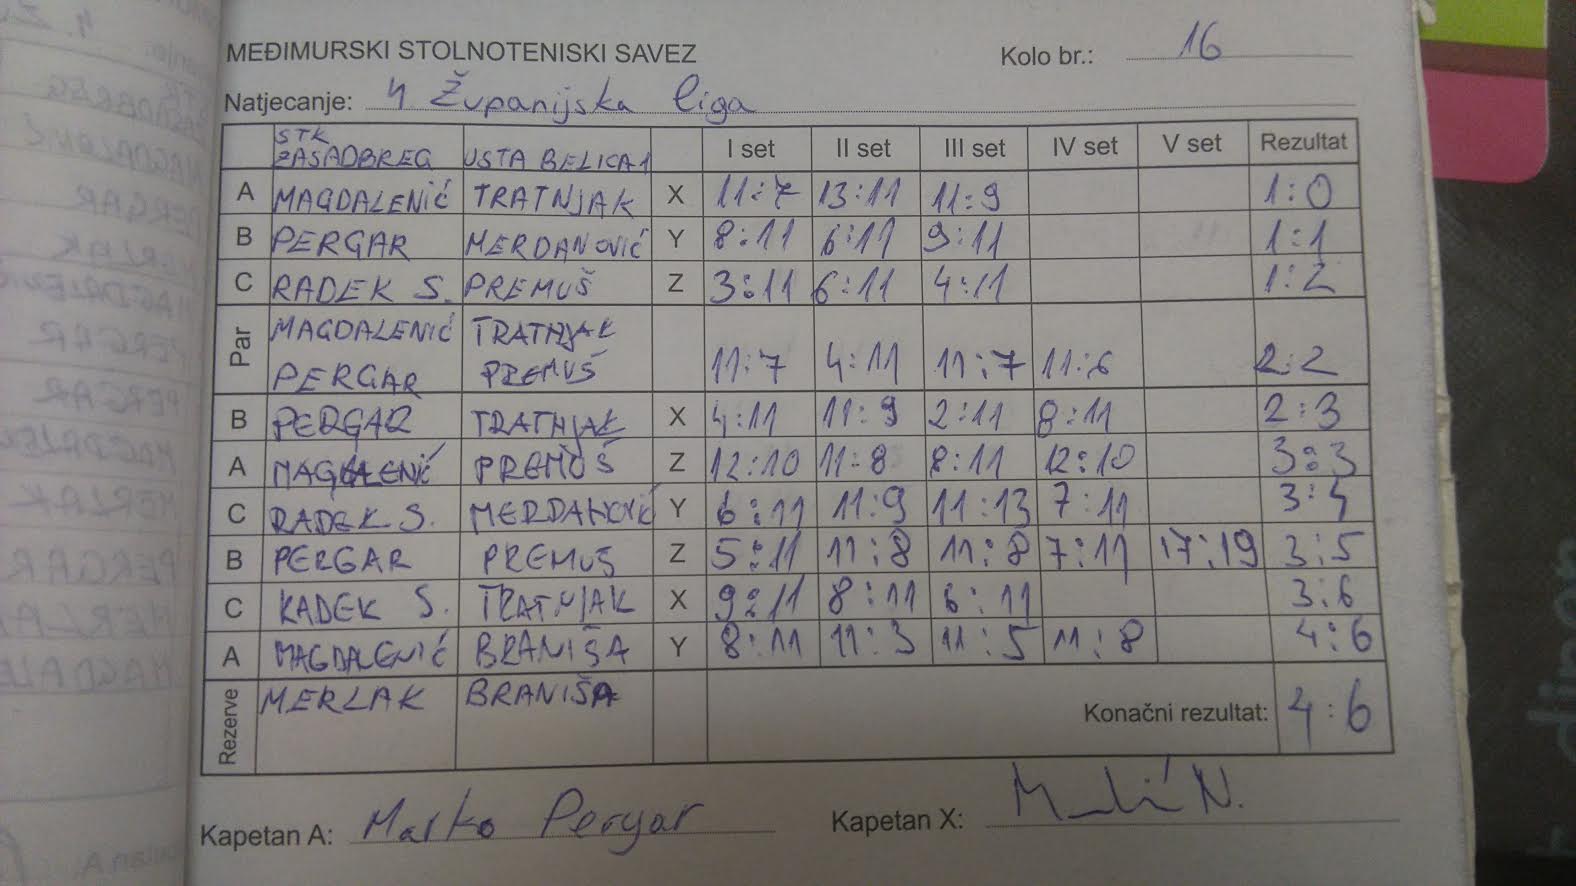 MEĐIMURSKI STOLNOTENISKI SAVEZ
Kolo br.: 16
Natjecanje: 4 Županijska liga
STK ZASADBREG USTA BELICA 1 I set II set III set IV set V set Rezultat
A MAGDALENIĆ TRATNJAK X 11:7 13:11 11:9 1:0
B PERGAR MERDANOVIĆ Y 8:11 6:11 9:11 1:1
C RADEK S. PREMUŠ Z 3:11 6:11 4:11 1:2
Par
MAGDALENIĆ TRATNJAK
PERGAR PREMUŠ 11:7 4:11 11:7 11:6 2:2
B PERGAR TRATNJAK X 4:11 11:9 2:11 8:11 2:3
A MAGDALENIĆ PREMUŠ Z 12:10 11:8 8:11 12:10 3:3
C RADEK S. MERDANOVIĆ Y 6:11 11:9 11:13 7:11 3:4
B PERGAR PREMUŠ Z 5:11 11:8 11:8 7:11 17:19 3:5
C RADEK S. TRATNJAK X 9:11 8:11 6:11 3:6
A MAGDALENIĆ BRANIŠA Y 8:11 11:3 11:5 11:8 4:6
Rezerve MERLAK BRANIŠA
Konačni rezultat: 4:6
Kapetan A: Marko Pergar
Kapetan X: